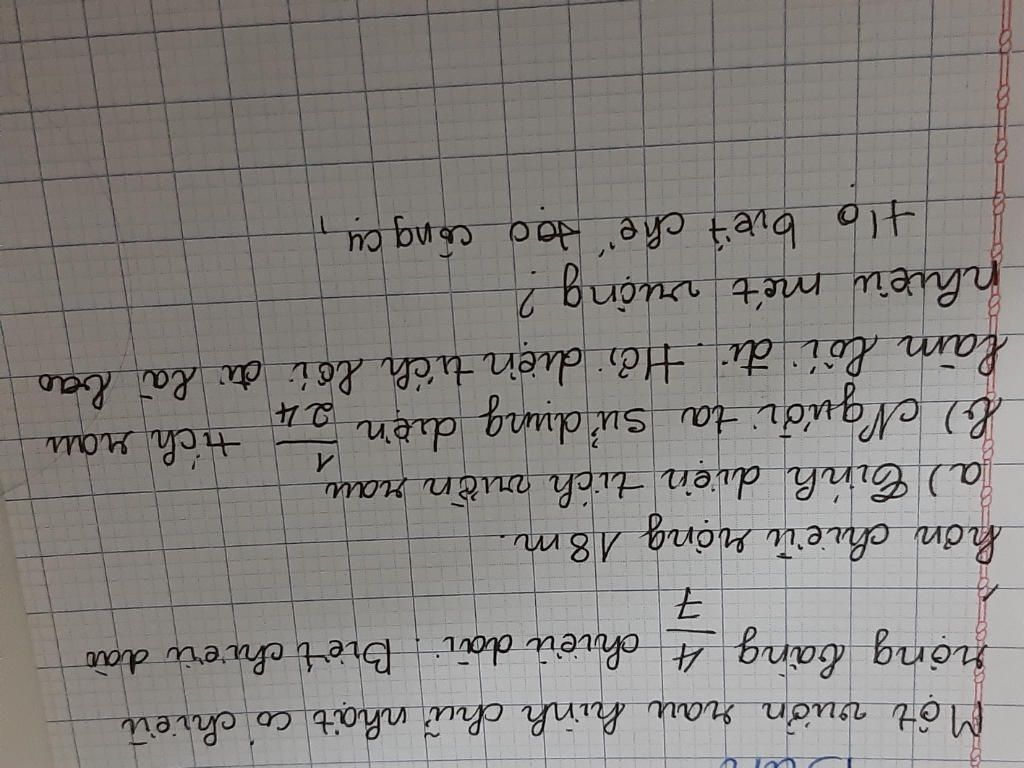 Một vườn rau hình chữ nhật có chiều
rộng bằng 4/7 chiều dài. Biết chiều dài
hơn chiều rộng 18m.
a) Tính diện tích vườn rau
b) Người ta sử dụng diện 1/24 tích rau
làm lối đi. Hỏi diện tích lối đi là bao
nhiêu mét vuông?
Họ biết chế tạo công cụ,